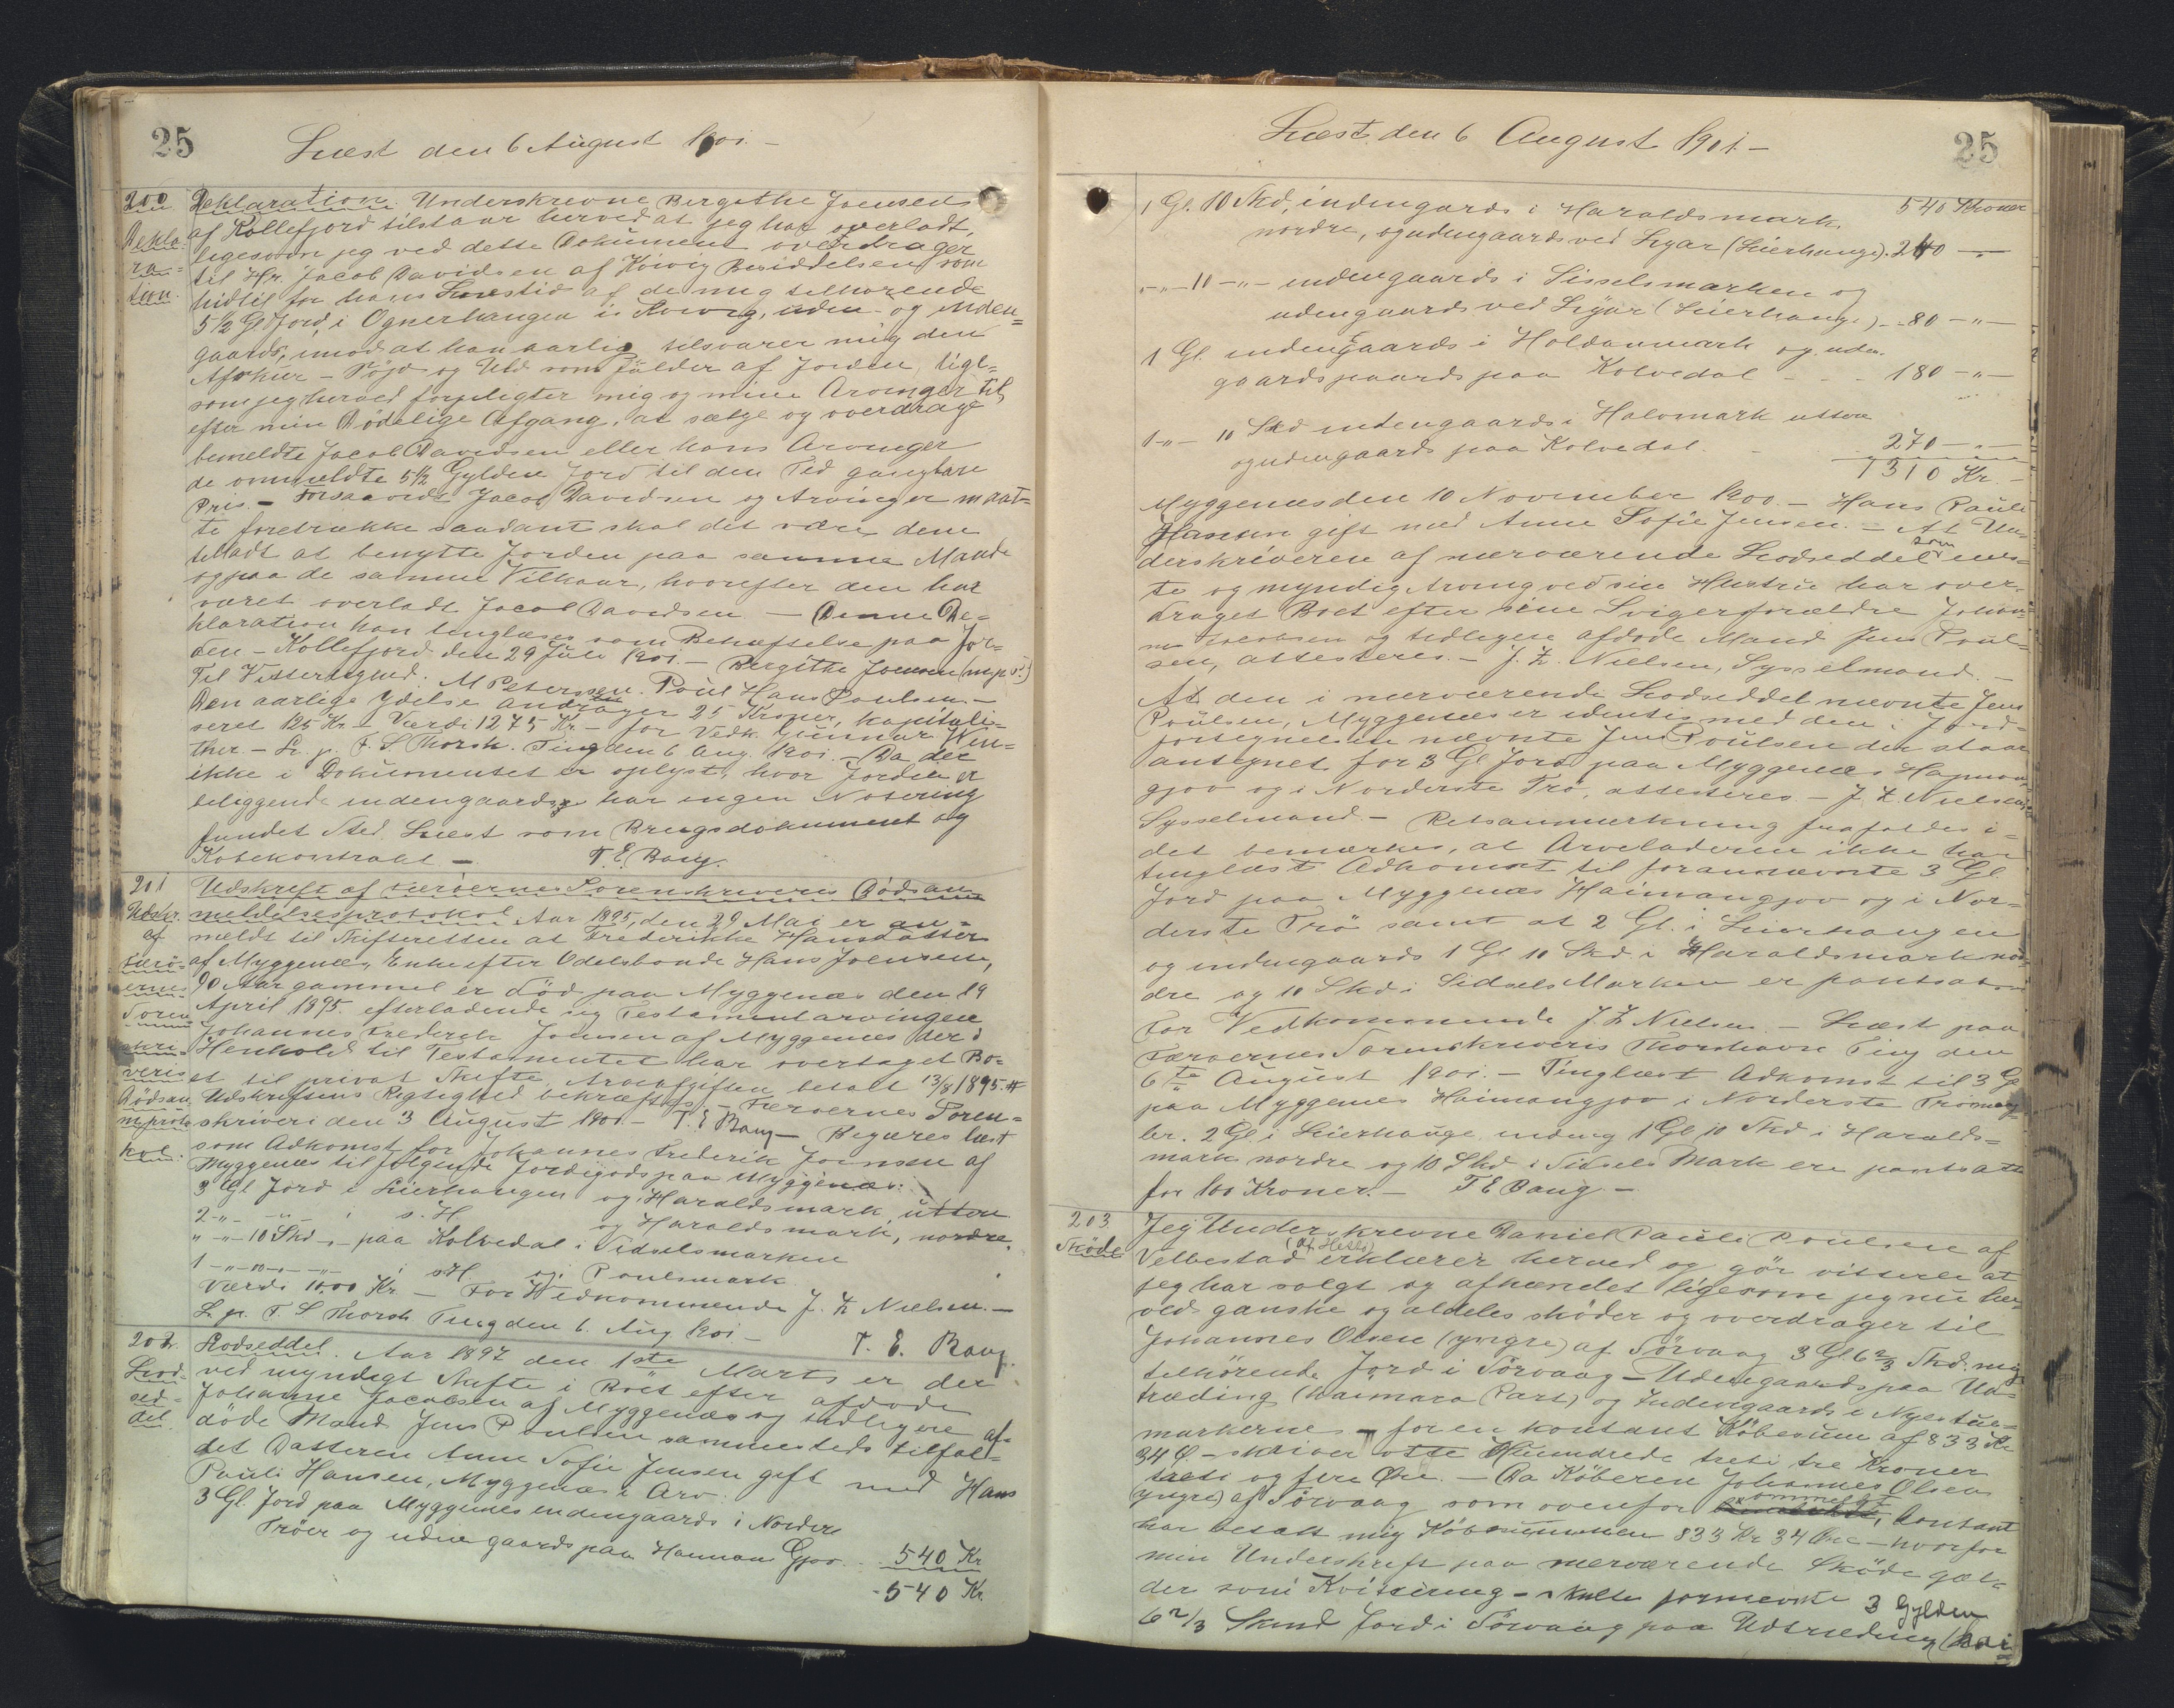 25
Læst den 6 August 1901. -
200
Dekla-
ra-
tion.
Deklaration. Underskrevne Bergithe Joensen
af Kollefjord tilstaar herved at jeg har overladt,
ligesom jeg ved dette Dokument overdrager
til Hr. Jacob Davidsen af Köivig Besiddelsen som
hidtil for hans Livstid af de mig tilhørende
5 1/2 Gl Jord i Ognerhangen i Köivig, uden- og inden-
gaards, imod at han aarlig tilsvarer mig den
Afskur - Föjd og Uld som falder af Jorden, lige-
som jeg herved forpligter mig og mine Arvinger til,
efter min Dödelige Afgang, at sælge og overdrage
bemeldte Jacob Davidsen eller hans Arvinger
de ommeldte 5 1/2 Gylden Jord til den Tid gangbare
Pris. - Forsaavidt Jacob Davidsen og Arvinger maat-
te foretrække saadant skal det være dem
tilladt at benytte Jorden paa samme Maade
og paa de samme Vilkaar, hvorefter den har
været overladt Jacob Davidsen - Denne De-
klaration kan tinglæses som Behæftelse paa Jor-
den - Kollefjord den 29 Juli 1901. - Bergithe Joensen (m.p.S.)
Til Vitterlighed: M Peterssen. Poul Hans Poulsen. -
Den aarlige Ydelse andrager 25 Kroner, kapitali-
seret 125 Kr. - Værdi 1275 Kr. - for Vedk. Gunnar Win-
ther. - L. p. F. S Thorsh. Ting den 6 Aug. 1901. - Da det
ikke i Dokumentet er oplyst, hvor Jorden er
beliggende indengaards har ingen Notering
fundet Sted. Læst som Brugsdokument og
Köbekontrakt - T. E. Bang.
201
Udskr.
af
Færö-
ernes
Soren
skri-
veris
Dödsan
m proto
kol.
Udskrift af Færöernes Sorenskriveris Dödsan-
meldelsesprotokol Aar 1895, den 29 Mai er an-
meldt til Skifteretten at Frederikke Hansdatter
af Myggenæs, Enke efter Odelsbonde Hans Joensen,
90 Aar gammel er död paa Myggenæs den 19
April 1895. efterladende sig Testamentarvingen
Johannes Frederik Joensen af Myggenæs der i
Henhold til Testamentet har overtaget Bo-
et til privat Skifte. Arveafgiften betalt 13/8 1895. #
Udskriftens Rigtighed bekræftes - Færöernes Soren-
skriveri den 3 August 1901. - T. E Bang - Begæres læst
som Adkomst for Johannes Frederik Joensen af
Myggenæs til følgende Jordegods paa Myggenæs:
3 Gl Jord i Leierhangen og i Haraldsmark, uttare
2 -„- -„- i s. H og Haraldsmark, nordre.
„ -„- 10 Skd -„- paa Kolvedal i Sidselsmarken
1 -„- 10 -„- -„- i s H og i Poulsmark
Værdi 1000 Kr - For Vedkommende J. Z Nielsen. -
L p. F. S Thorsh Ting den 6. Aug 1901 - T. E. Bang.
202.
Lod-
sed-
del.
Lodseddel. Aar 1897 den 1ste Marts er der
ved myndigt Skifte i Boet efter afdöde
Johanne Jacobsen af Myggenæs og tidligere af-
döde Mand Jens Poulsen sammesteds tilfal-
det Datteren Anne Sofie Jensen gift med Hans
Pauli Hansen, Myggenæs i Arv.
3 Gl. Jord paa Myggenæs indengaards i Nordere
Tröer og udengaards paa Haman Gjov .. 540 Kr
540 Kr.
Læst den 6 August 1901. -
25
1 Gl. 10 Skd, indengards i Haraldsmark 540 Kroner
nordre, og udengaards ved Lyar (Leierhange). 240 -„-
-„- 10 -„- indengaards i Sisselsmarken og
udengaards ved Lyar (Leierhange) .. 80 -„-
1 Gl. indengaards i Holdanmark og uden-
gaardspaards paa Kolvedal - - - 180 -„-
1 -„- 10 Skd indengaards i Halvmark uttare
og udengaards paa Kolvedal. - 270 -„-
1310 Kr. -
Myggenæs den 10 November 1900. - Hans Pauli
Hansen gift med Anne Sofie Jensen. - At Un-
derskriveren af nærværende Lodseddel som enes-
te og myndig Arving ved sin Hustru har over-
draget Boet efter sine Svigerforældre Johan-
ne Jacobsen og tidligere afdöde Mand Jens Poul-
sen, attesteres. - J. Z. Nielsen, Sysselmand. -
At den i nærværende Lodseddel nævnte Jens
Poulsen, Myggenæs er identisk med den i Jord-
fortegnelsen nævnte Jens Poulsen der staar
antegnet for 3 Gl Jord paa Myggenæs Hajman-
gjov og i Norderste Trö, attesteres. - J. Z. Nielsen,
Sysselmand. - Retsanmærkning frafaldes i-
det bemærkes, at Arveladeren ikke har
tinglæst Adkomst til forannævnte 3 Gl.
Jord paa Myggenæs Haimangjov og i Nor-
derste Trö samt at 2 Gl. i Leierhangen
og indengaards 1 Gl 10 Skd i Haraldsmark nor-
dre og 10 Skd i Sidsels Marken er pantsat.
For Vedkommende J. Z Nielsen. - Læst paa
Færöernes Sorenskriveris Thorshavn Ting den
6te August 1901. - Tinglæst Adkomst til 3 Gl
paa Myggenæs Haimangjov i Norderste Trö mang-
ler. 2 Gl i Leierhange indeng 1 Gl 10 Skd i Haralds-
mark nordre og 10 Skd i Sidsels Mark ere pantsatte
for 100 Kroner. - T E Bang. -
203
Sköde
Jeg Underskrevne Daniel Pauli Poulsen af
Velbestad (af Hesli) erklærer herved og gör vitterlig at
jeg har solgt og afhændet ligesom jeg nu her-
ved ganske og aldeles sköder og overdrager til
Johannes Olsen (yngre) af Sörvaag 3 Gl. 6 2/3 Skd. mig
tilhörende Jord i Sörvaag - Udengaards paa Ud-
træding (haimara Part) og Indengaards i Nyestue-
markerne - for en kontant Köbesum af 833 Kr
34 Ø - skriver otte Hundrede treti tre Kroner
treti og fire Öre. - Da Köberen Johannes Olsen
yngre) af Sörvaag som ovenfor ommeldt, kontant
har betalt mig Köbesummen 833 Kr 34 Öre - hvorfor
min Underskrift paa nærværende Sköde gæl-
der som Kvittering - skulle formente 3 Gylden
6 2/3 Skind Jord i Sörvaag paa Udtræding (hai-